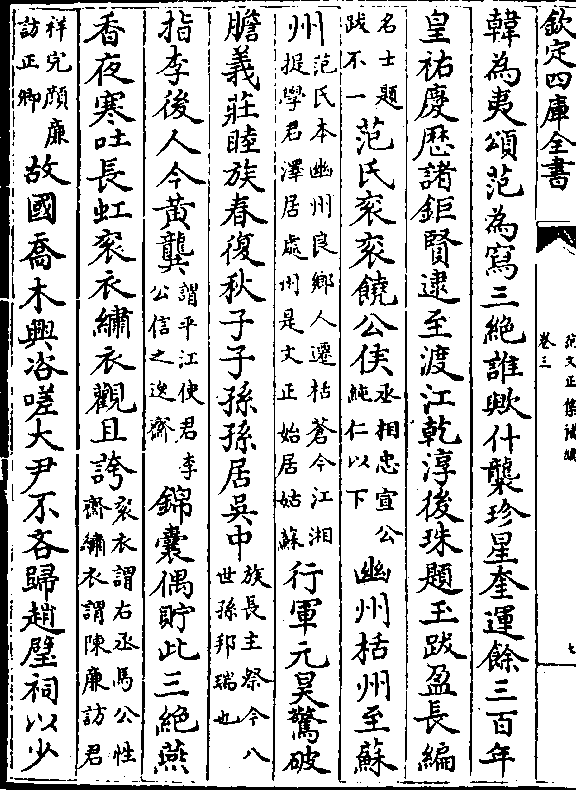 欽定四庫全書
范文正集補編
卷三
七
韓為夷頌范為寫三絶誰歟什襲珍星奎運餘三百年
皇祐慶厯諸鉅賢逮至渡江乾淳後珠題玉跋盈長編
名士題跋不一范氏衮衮饒公侯丞相忠宣公純仁以下幽州栝州至蘇
州范氏本幽州良鄉人遷栝蒼今江湘提學君澤居處州是文正始居姑蘇行軍元昊驚破
膽義莊睦族春復秋子子孫孫居吳中族長主祭今八世孫邦瑞也
指李後人今黃龔謂平江使君李公信之逸齋錦囊偶貯此三絶燕
香夜寒吐長虹衮衣繡衣觀且誇衮衣謂右丞馬公性齋繡衣謂陳廉訪君
祥完顔廉訪正卿故國喬木興浴嗟大尹不吝歸趙璧祠以少